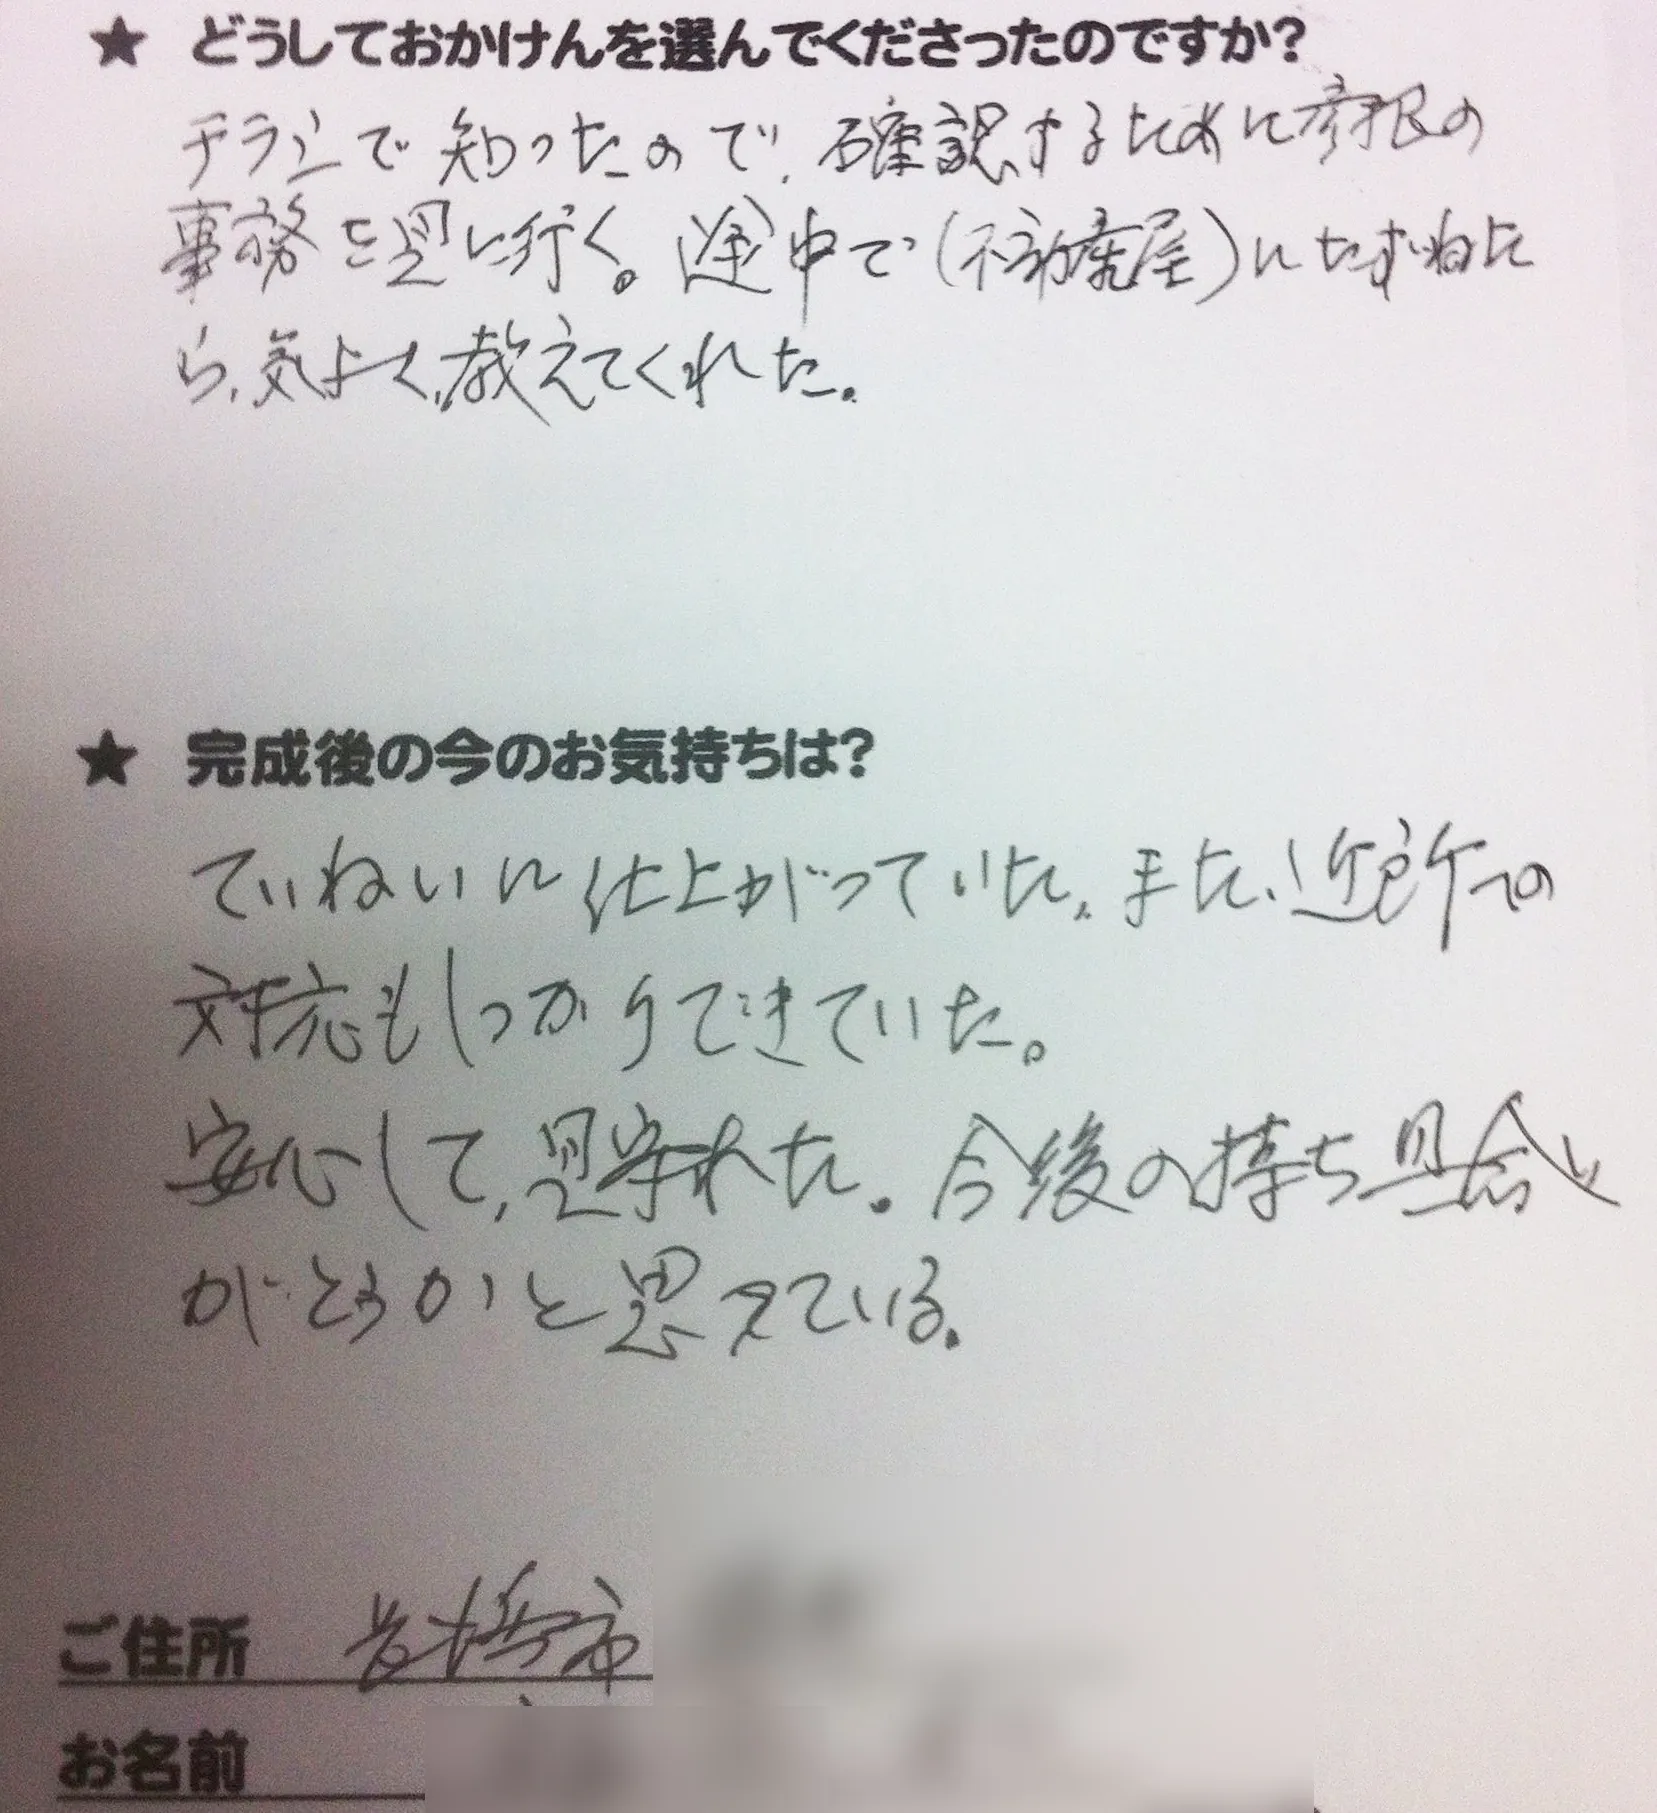 ★ どうしておかけんを選んでくださったのですか?
チラシで知ったので、確認するために彦根の
事務を見に行く。途中で(不動産屋)にたずねた
ら、気よく、教えてくれた。
★ 完成後の今のお気持ちは?
ていねいに仕上がっていた。また、近所への
対応もしっかりできていた。
安心して、見守れた。今後の持ち具合
がどうかと思えている。
ご住所
お名前